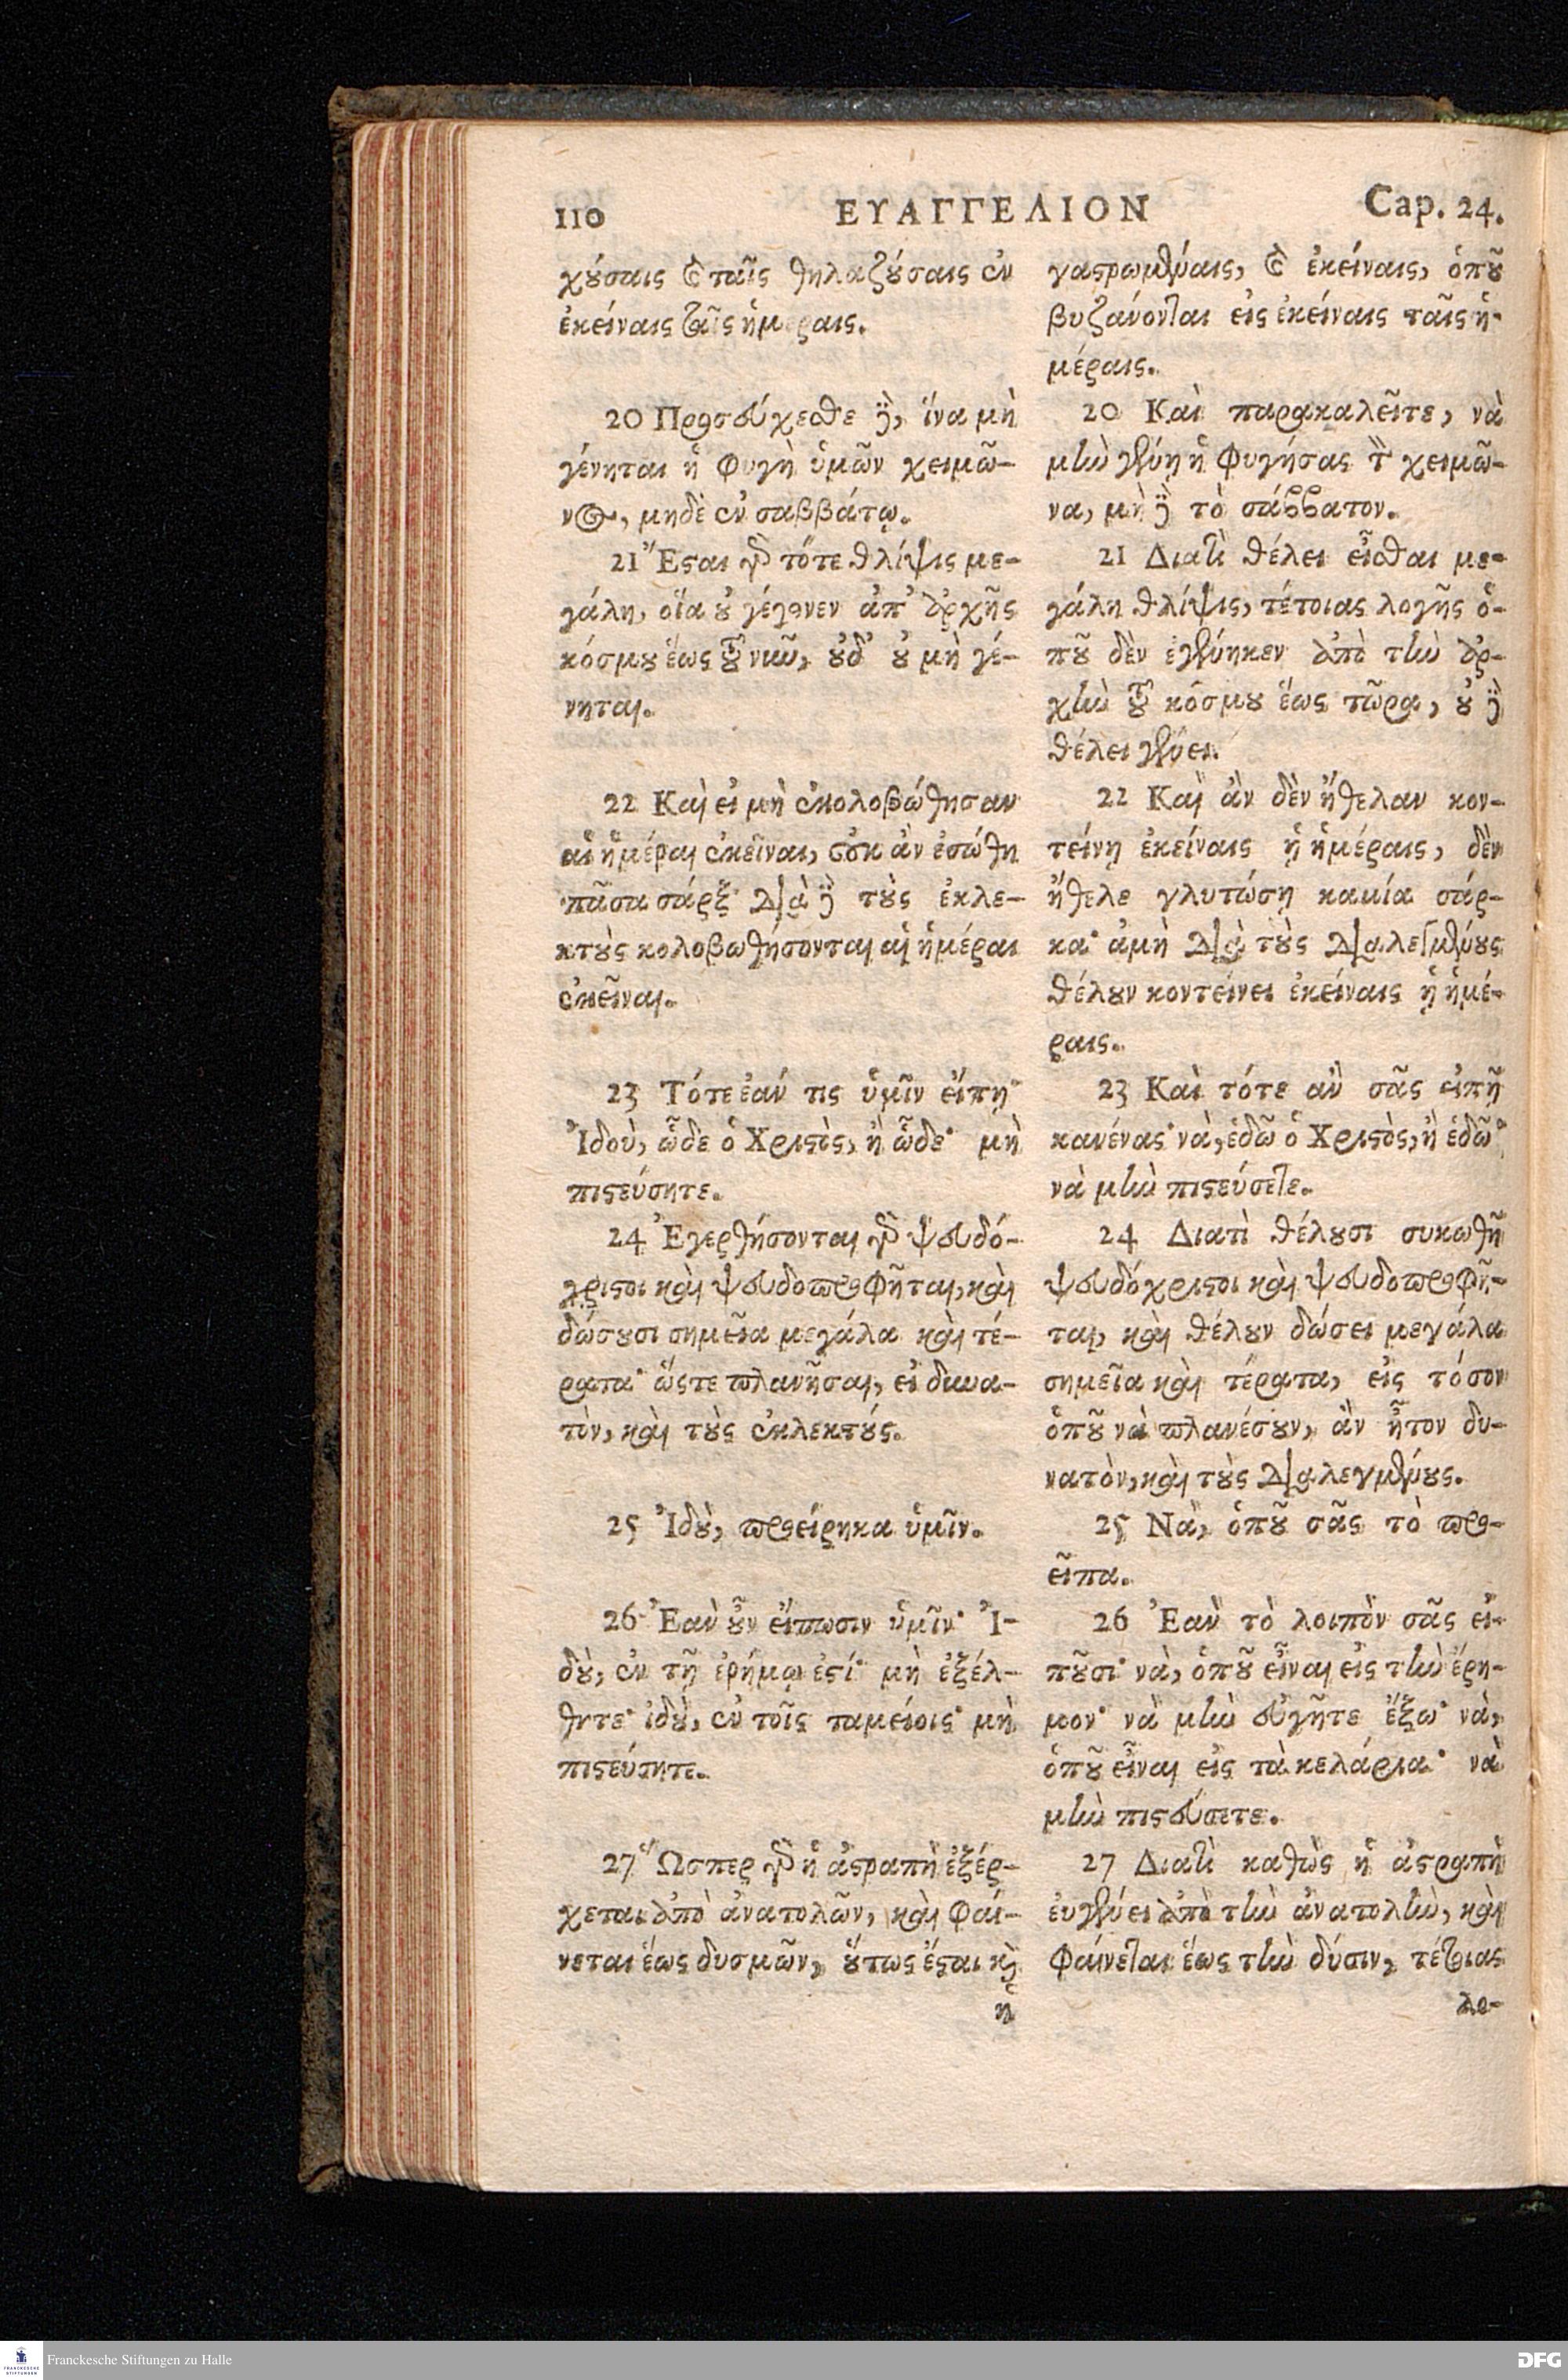 110 ΕΥΑΓΓΕΛΙΟΝ Cap. 24.
χȣ́σαις ϗ̀ ταῖς θηλαζȣ́σαις ἐν
ἐκείναις ταῖς ἡμέραις.
20 Προσεύχεσθε δὲ, ἵνα μὴ
γένηται ἡ φυγὴ ὑμῶν χειμῶ-
νος, μηδὲ ἐν σαββάτῳ.
21 Ἔϛαι γὰρ τότε θλίψις με-
γάλη, οἵα ȣ̓ γέγονεν ἀπ' ἀρχῆς
κόσμȣ ἕως τȣ͂ νιῦ, ȣ̓δ' ȣ̓ μὴ γέ-
νηται.
22 Καὶ εἰ μὴ ἐκολοβώθησαν
αἱ ἡμέραι ἐκεῖναι, ȣ̓κ ἂν ἐσώθη
πᾶσα σάρξ· διὰ δὲ τȣ̀ς ἐκλε-
κτȣ̀ς κολοβωθήσονται αἱ ἡμέραι
ἐκεῖναι.
23 Τότε ἐάν τις ὑμῖν εἴπῃ·
Ἰδοὺ, ὧδε ὁ Χριϛὸς, ἢ ὧδε· μὴ
πιϛεύσητε.
24 Ἐγερθήσονται γὰρ ψευδό-
χριϛοι καὶ ψευδοπροφῆται, καὶ
δώσȣσι σημεῖα μεγάλα καὶ τέ-
ρατα· ὥϛε πλανῆσαι, εἰ δυνα-
τὸν, καὶ τȣ̀ς ἐκλεκτȣ́ς.
25 Ἰδȣ̀, προείρηκα ὑμῖν.
26 Ἐὰν ȣ̓͂ν εἴπωσιν ὑμῖν· Ἰ-
δȣ̀, ἐν τῇ ἐρήμῳ ἐϛί· μὴ ἐξέλ-
θητε· ἰδȣ̀, ἐν τοῖς ταμείοις· μὴ
πιϛεύσητε.
27 Ὥσπερ γὰρ ἡ ἀϛραπὴ ἐξέρ-
χεται ἀπὸ ἀνατολῶν, καὶ φαί-
νεται ἕως δυσμῶν, ȣ̔́τως ἔϛαι ϗ̀
ἡ
γαϛρωμέναις, ϗ̀ ἐκείναις, ὁπȣ͂
βυζαύονται εἰς ἐκείναις ταῖς ἡ-
μέραις.
20 Καὶ παρακαλεῖτε, νὰ
μὴν γένῃ ἡ φυγήσας τὸν χειμῶ-
να, μὴ δὲ τὸ σάββατον.
21 Διατὶ θέλει εἶσθαι με-
γάλη θλίψις, τέτοιας λογῆς ὁ-
πȣ͂ δὲν ἐγένηκεν ἀπὸ τὴν ἀρ-
χὴν τȣ͂ κόσμȣ ἕως τῶρα, ȣ̓ δὲ
θέλει γένει.
22 Καὶ ἂν δὲν ἤθελαν κον-
τείνῃ ἐκείναις ᾑ ἡμέραις, δὲν
ἤθελε γλυτώσῃ καμία σάρ-
κα· ἀμὴ διὰ τȣ̀ς διαλεγμένȣς
θέλȣν κοντείνει ἐκείναις ᾑ ἡμέ-
ραις.
23 Καὶ τότε ἂν σᾶς εἰπῇ
κανένας· νὰ, ἐδῶ ὁ Χριϛὸς, ἢ ἐδῶ·
νὰ μὴν πιϛεύσετε.
24 Διατὶ θέλȣσι συκωθῆ
ψευδόχριϛοι καὶ ψευδοπροφῆ-
ται, καὶ θέλȣν δώσει μεγάλα
σημεῖα καὶ τέρατα, εἰς τόσον
ὁπȣ͂ νὰ πλανέσȣν, ἂν ἦτον δυ-
νατὸν, καὶ τȣ̀ς διαλεγμένȣς.
25 Νὰ, ὁπȣ͂ σᾶς τὸ προ-
εῖπα.
26 Ἐὰν τὸ λοιπὸν σᾶς εἰ-
πȣ͂σι· νὰ, ὁπȣ͂ εἶναι εἰς τὴν ἔρη-
μον· νὰ μὴν εὐγῆτε ἔξω· νὰ,
ὁπȣ͂ εἶναι εἰς τὰ κελάρια· νὰ
μὴν πιϛεύσετε.
27 Διατὶ καθὼς ἡ ἀϛραπὴ
ἐυγένει ἀπὸ τὴν ἀνατολὴν, καὶ
φαίνεται ἕως τὴν δύσιν, τέτοιας
λο-
Franckesche Stiftungen zu Halle
DFG